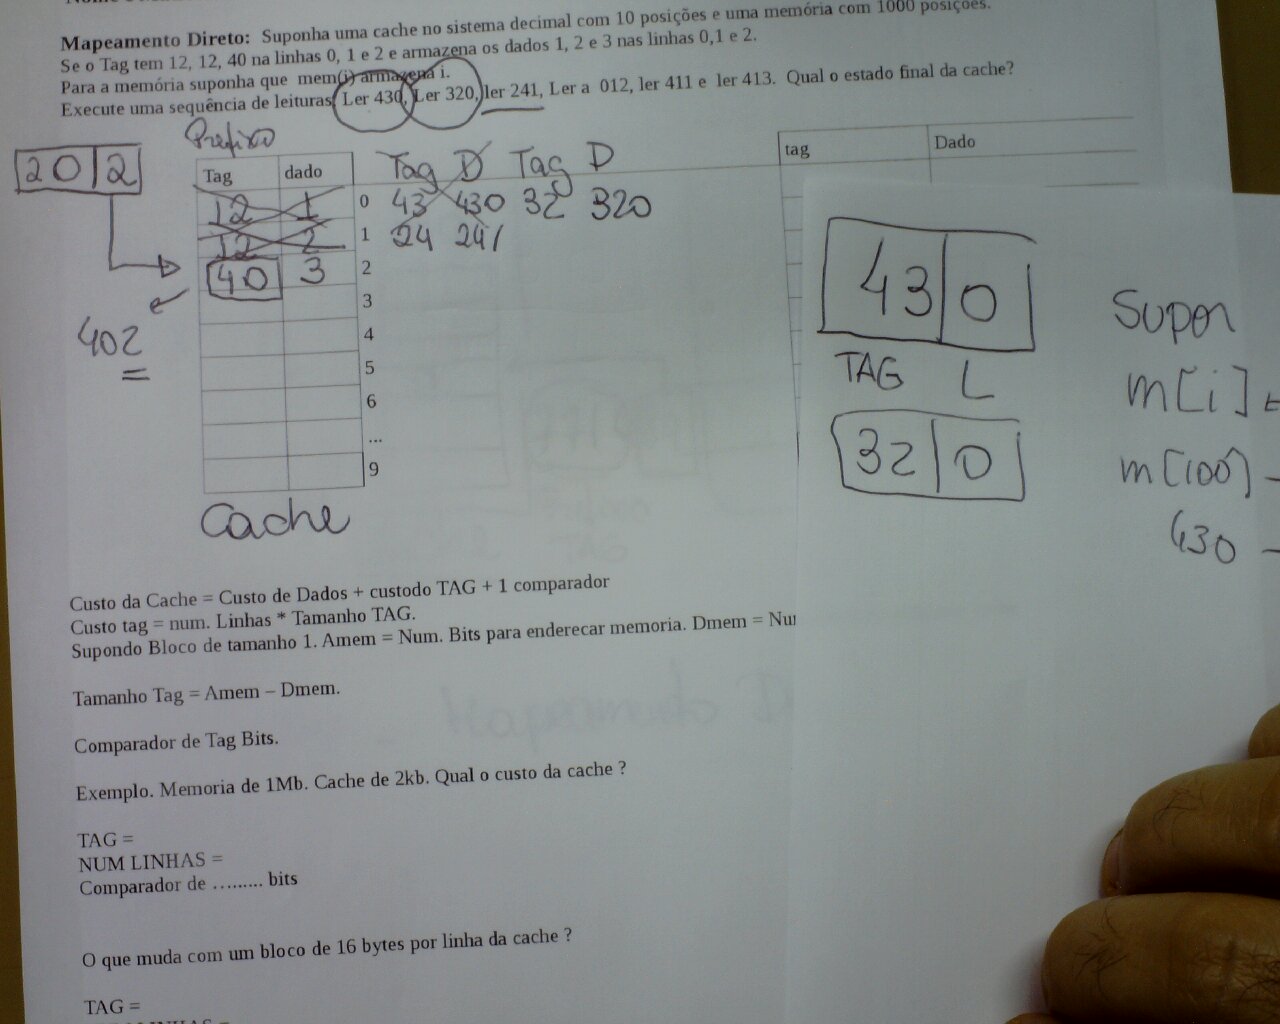 Mapeamento Direto: Suponha uma cache no sistema decimal com 10 posições e uma memória com 1000 posições.
Se o Tag tem 12, 12, 40 na linhas 0, 1 e 2 e armazena os dados 1, 2 e 3 nas linhas 0,1 e 2.
Para a memória suponha que mem(i) armazena i.
Execute uma sequência de leituras Ler 430, Ler 320, ler 241, Ler a 012, ler 411 e ler 413. Qual o estado final da cache?
Prefixo
20 2
Tag dado
12 1 0
12 2 1
40 3 2
3
4
5
6
...
9
Tag D Tag D
43 430 32 320
24 241
402
Cache
tag Dado
43 0
TAG L
32 0
Supon
m[i] =
m[100]
430
Custo da Cache = Custo de Dados + custodo TAG + 1 comparador
Custo tag = num. Linhas * Tamanho TAG.
Supondo Bloco de tamanho 1. Amem = Num. Bits para enderecar memoria. Dmem =
Tamanho Tag = Amem – Dmem.
Comparador de Tag Bits.
Exemplo. Memoria de 1Mb. Cache de 2kb. Qual o custo da cache ?
TAG =
NUM LINHAS =
Comparador de ......... bits
O que muda com um bloco de 16 bytes por linha da cache ?
TAG =